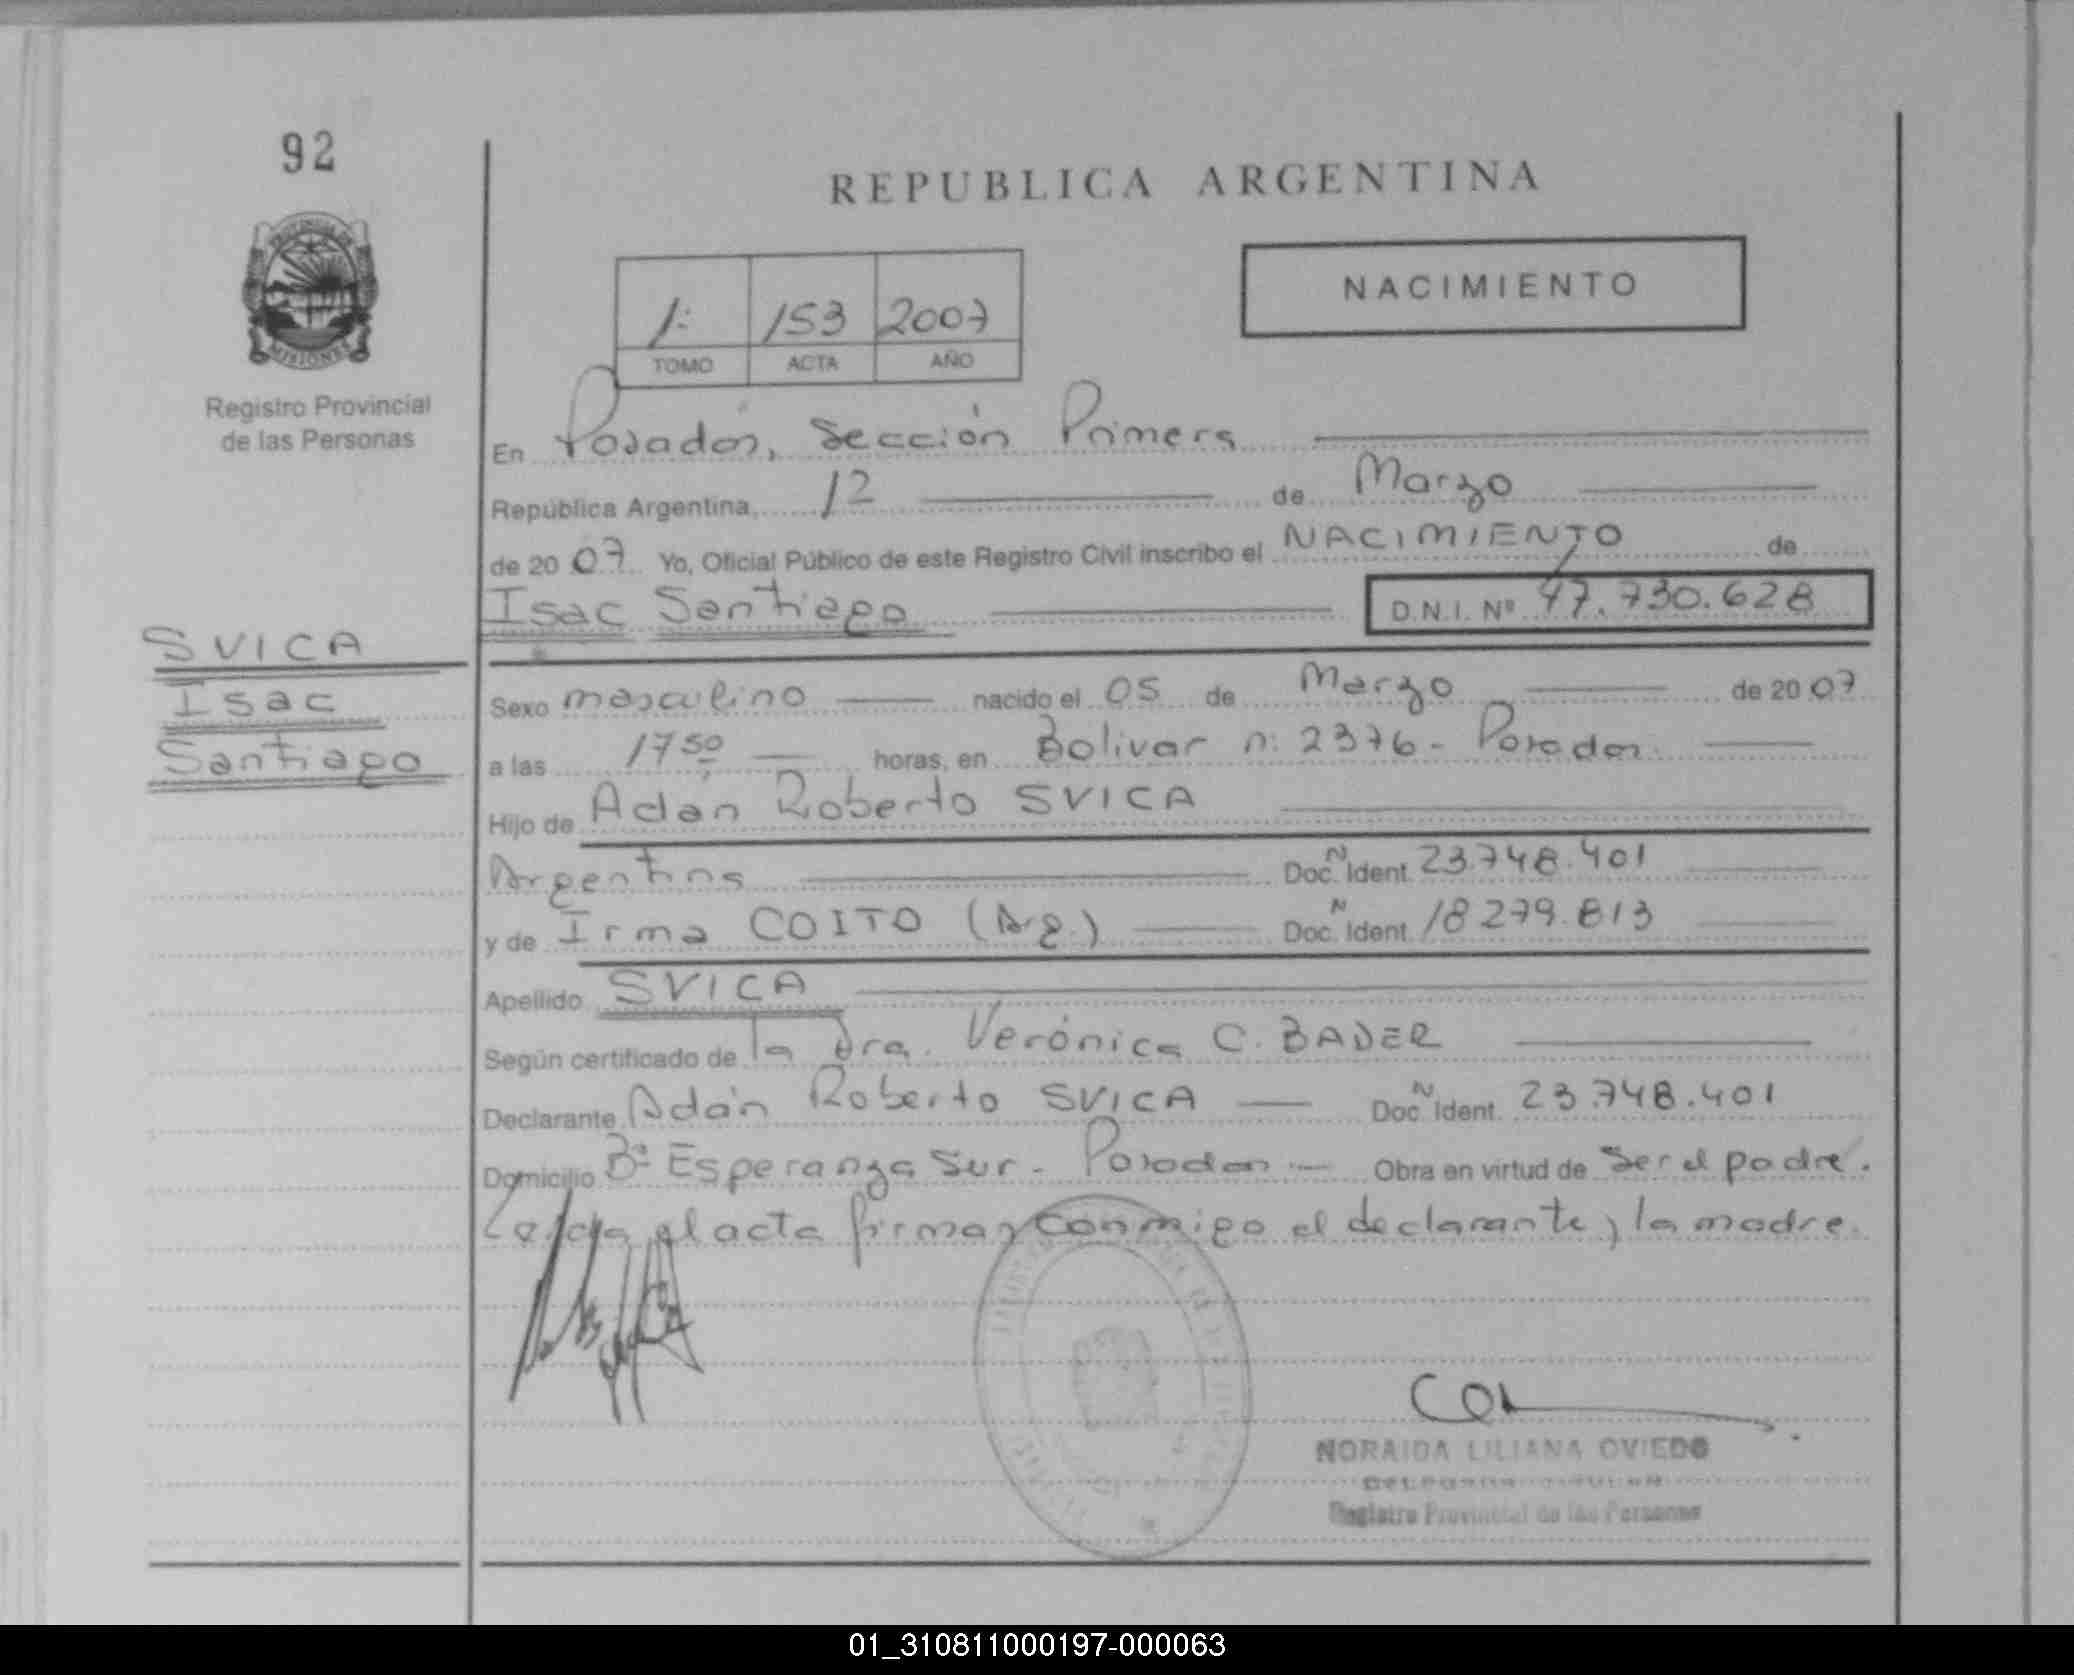 92
REPUBLICA ARGENTINA
PROVINCIA DE
MISIONES
Registro Provincial
de las Personas
1: 153 2007
TOMO ACTA AÑO
NACIMIENTO
En Posadas, Sección Primera
República Argentina, 12 de Marzo
de 2007 Yo, Oficial Público de este Registro Civil inscribo el NACIMIENTO de
Isac Santiago D.N.I. Nº 47.730.628
SVICA
Isac
Santiago
Sexo masculino nacido el 05 de Marzo de 2007
a las 17 50 horas, en Bolivar n: 2376 - Posadas.
Hijo de Adán Roberto SVICA
Argentina Doc. N Ident. 23.748.401
y de Irma COITO (Arg.) Doc. N Ident. 18 279.813
Apellido SVICA
Según certificado de la Dra. Verónica C. BADER
Declarante Adán Roberto SVICA Doc. N Ident. 23.748.401
Domicilio Bº Esperanza Sur - Posadas - Obra en virtud de ser el padre.
Leida el acta firman conmigo el declarante y la madre.
NORAIDA LILIANA OVIEDO
Registro Provincial de las Personas
01_310811000197-000063